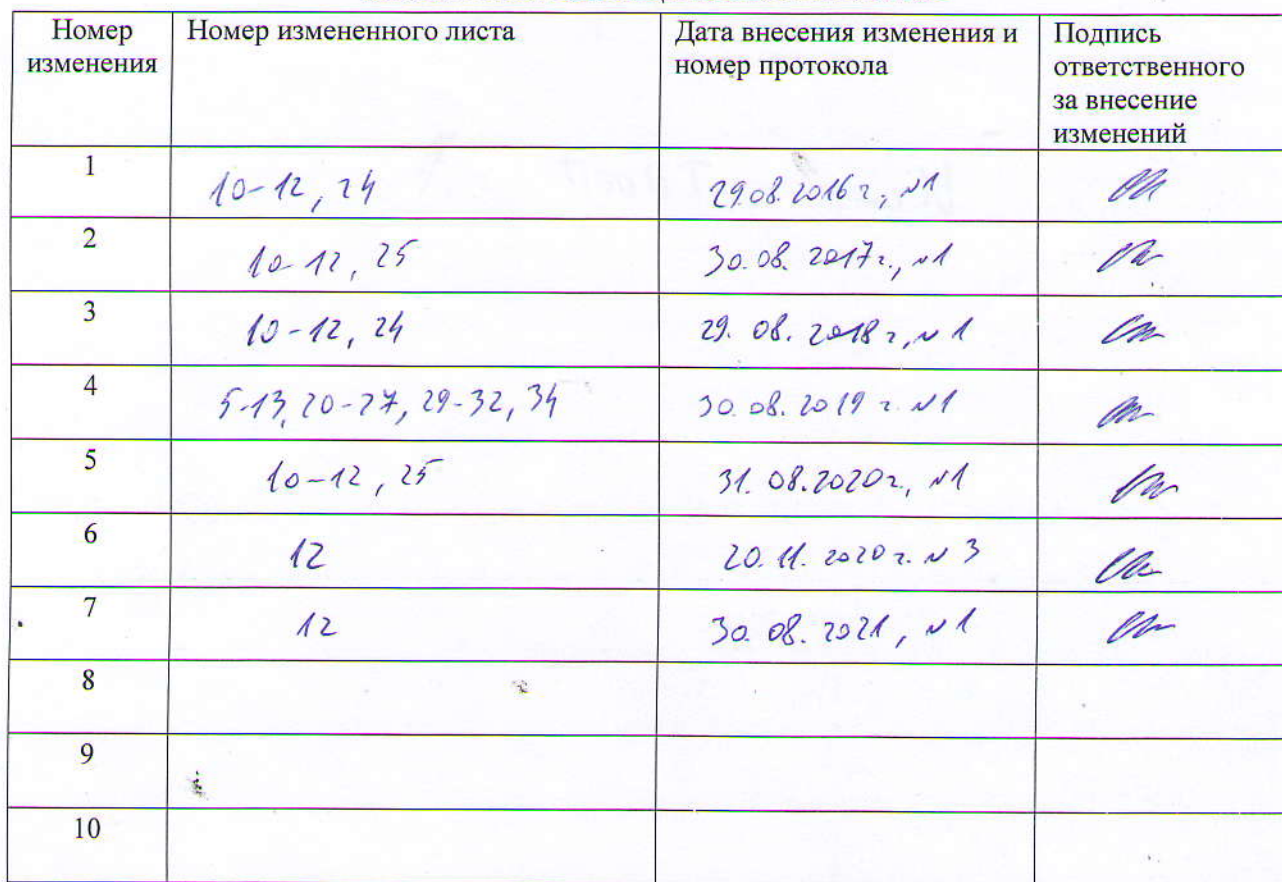 Номер изменения | Номер измененного листа | Дата внесения изменения и номер протокола | Подпись ответственного за внесение изменений
1 | 10-12, 24 | 29.08.2016 г, №1
2 | 10-12, 25 | 30.08.2017г., №1
3 | 10-12, 24 | 29.08.2018 г, №1
4 | 5-13, 20-27, 29-32, 34 | 30.08.2019 г. №1
5 | 10-12, 25 | 31.08.2020г., №1
6 | 12 | 20.11.2020 г. №3
7 | 12 | 30.08.2021, №1
8
9
10